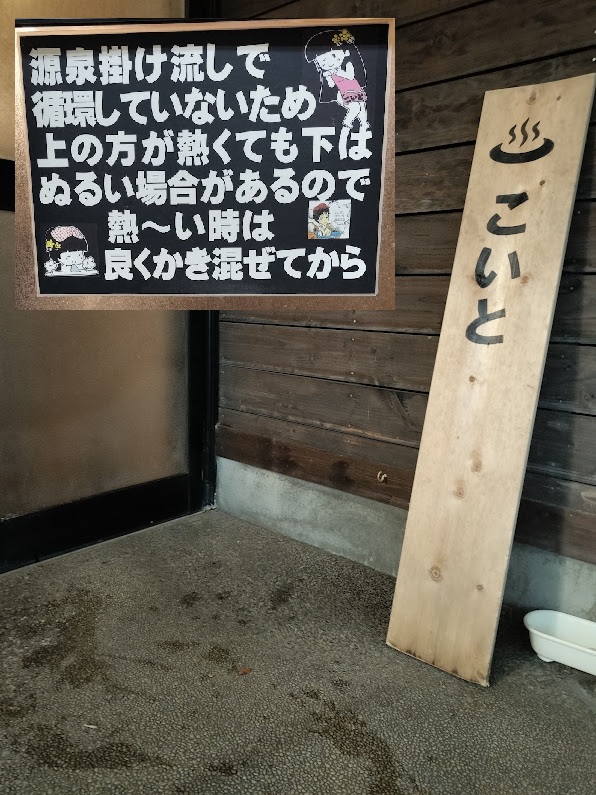 源泉掛け流しで
循環していないため
上の方が熱くても下は
ぬるい場合があるので
熱〜い時は
良くかき混ぜてから
こいと